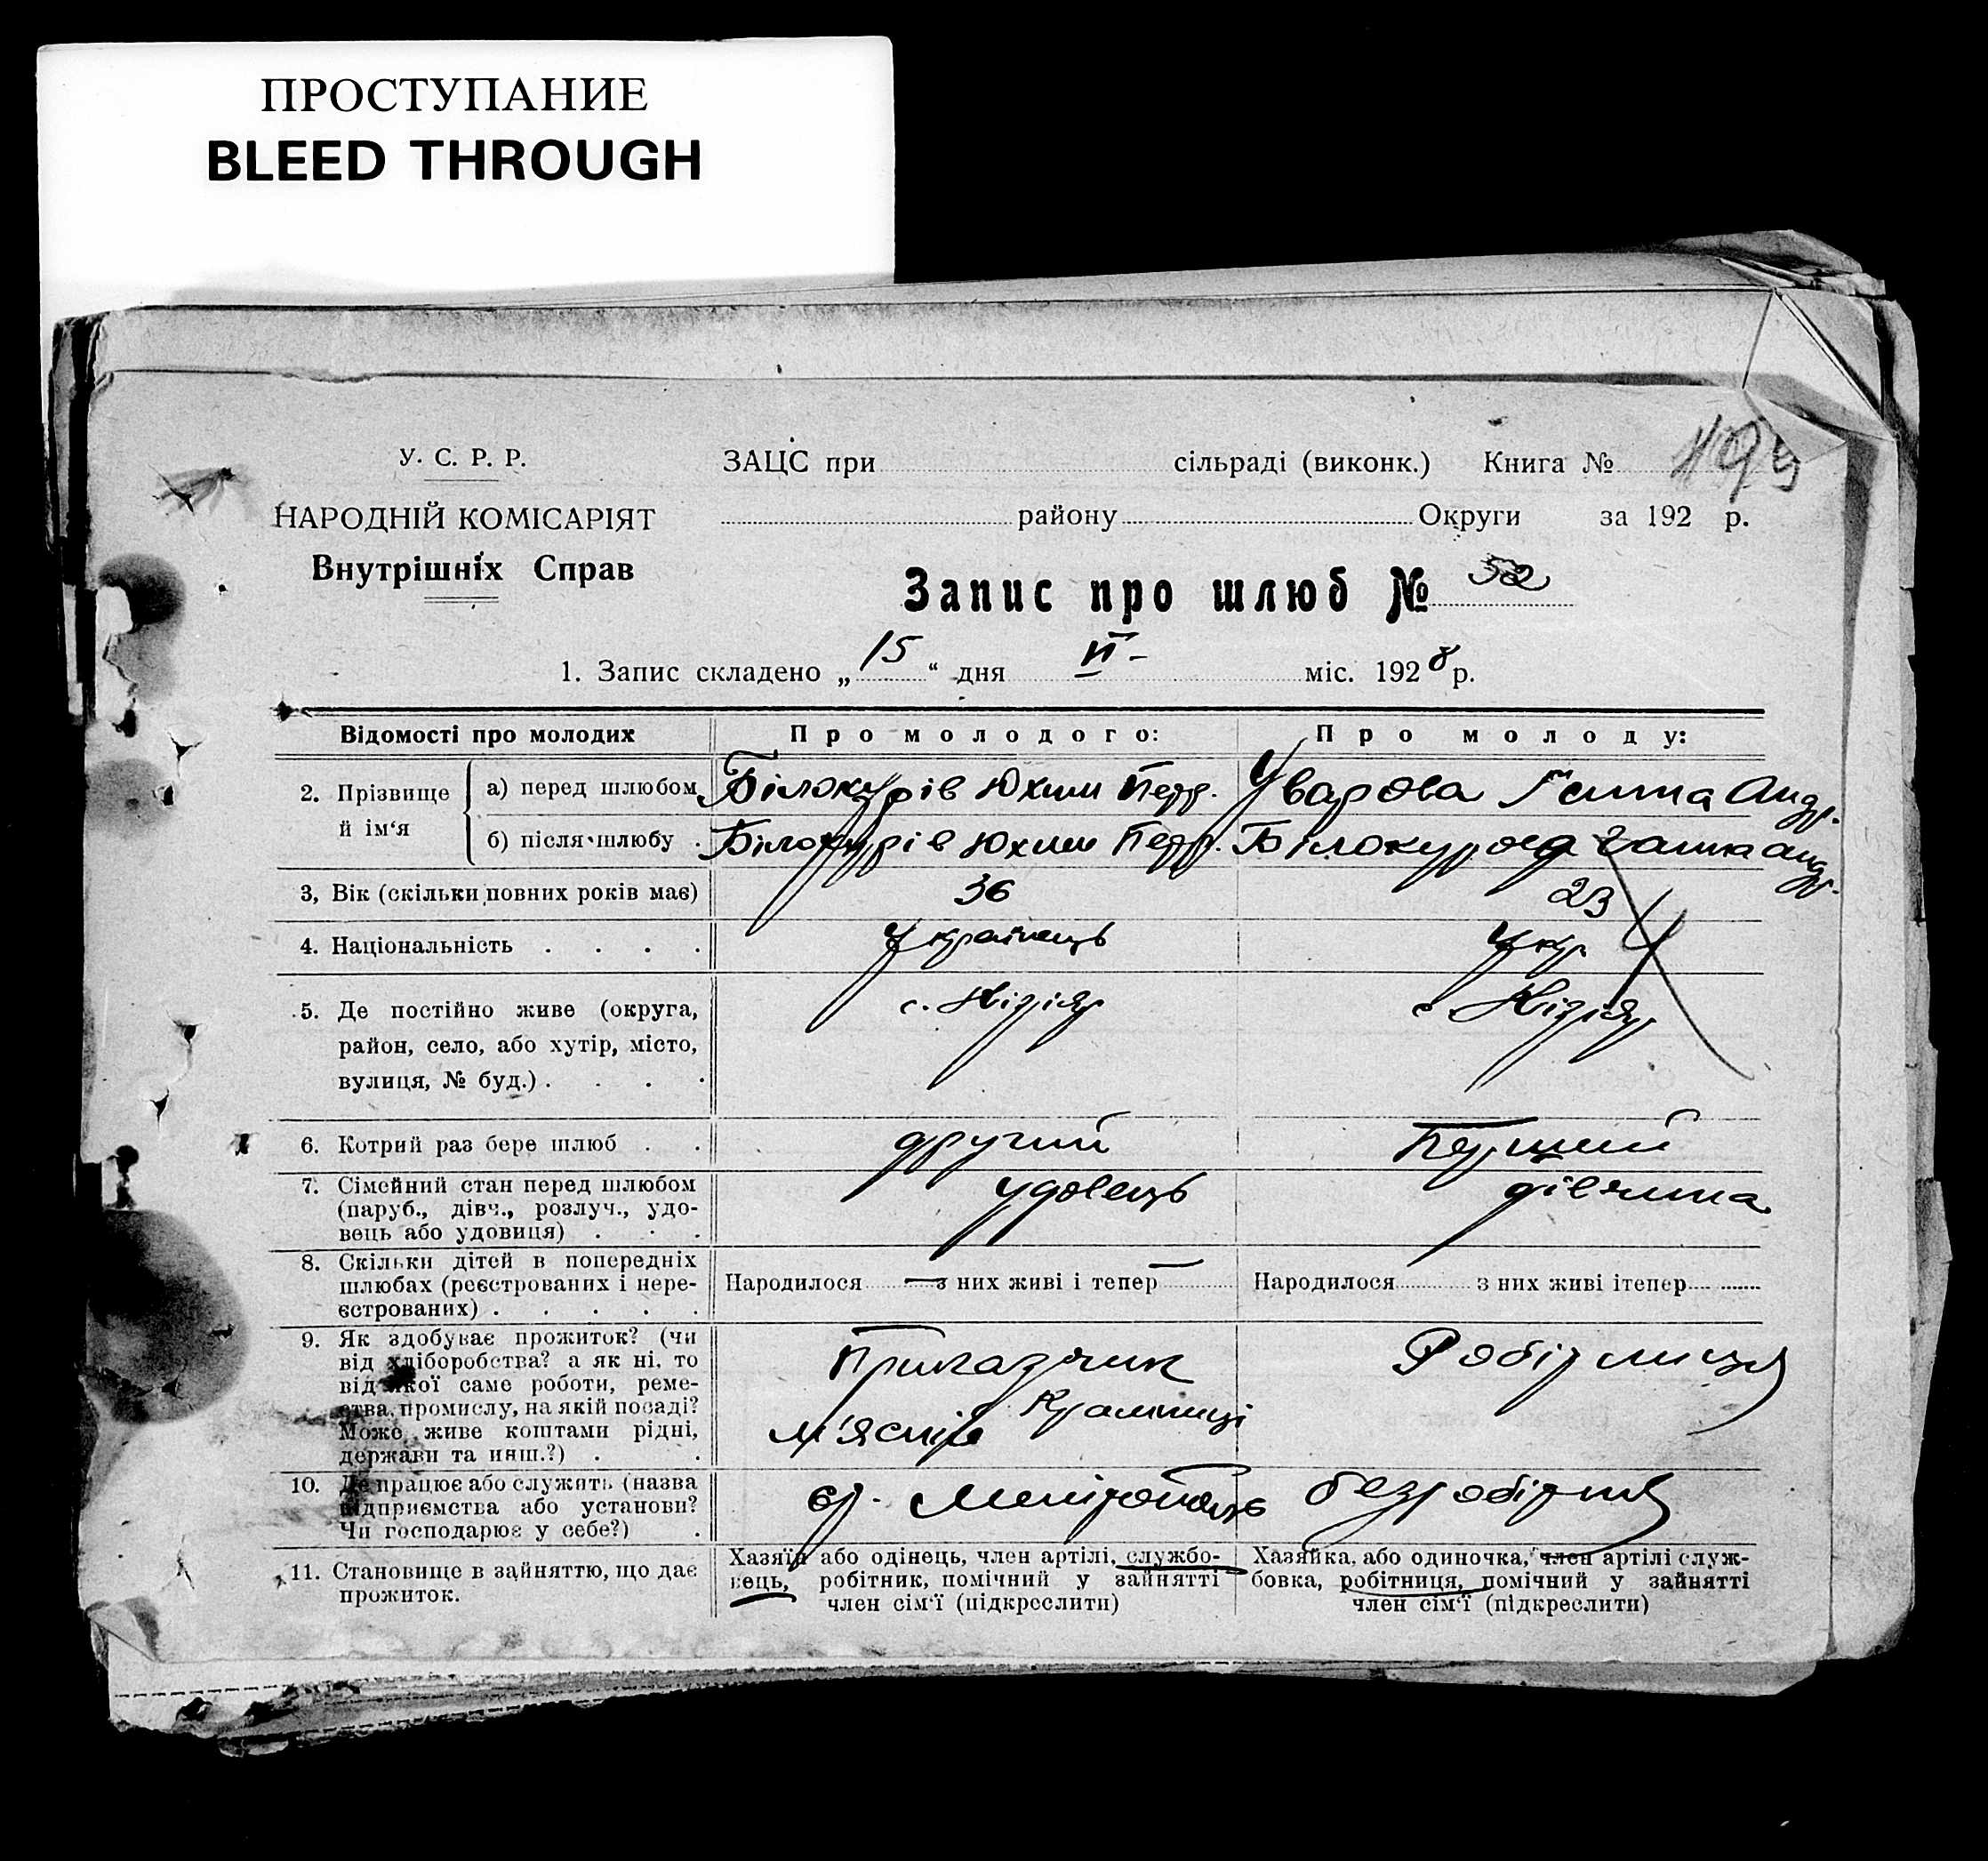 ПРОСТУПАНИЕ
BLEED THROUGH
495
У. С. Р. Р.
НАРОДНІЙ КОМІСАРІЯТ
Внутрішніх Справ
ЗАЦС при сільраді (виконк.) Книга №
району Округи за 192 р.
Запис про шлюб № 52
1. Запис складено „ 15 “ дня VI - міс. 1928 р.
Відомості про молодих
Про молодого:
Про молоду:
2. Прізвище й ім‘я
а) перед шлюбом
Білокурів Юхим Петр.
Уварова Ганна Андр.
б) після шлюбу
Білокурів Юхим Петр.
Білокурова Ганна Андр.
3, Вік (скільки повних років має)
36
23
4. Національність . . . .
Українець
Укр.
5. Де постійно живе (округа,
район, село, або хутір, місто,
вулиця, № буд.) . . . .
с.
с.
6. Котрий раз бере шлюб . .
другий
Перший
7. Сімейний стан перед шлюбом
(паруб., дівч., розлуч., удо-
вець або удовиця) . . .
удовець
дівчина
8. Скільки дітей в попередніх
шлюбах (реєстрованих і нере-
єстрованих) . . . . .
Народилося — з них живі і тепер —
Народилося з них живі ітепер
9. Як здобуває прожиток? (чи
від хліборобства? а як ні, то
від якої саме роботи, реме-
ства, промислу, на якій посаді?
Може живе коштами рідні,
держави та инш.?) . .
Приказчик
м'ясній Крамниці
Робітниця
10. Де працює або служить (назва
підприємства або установи?
Чи господарює у себе?) .
безробітня
11. Становище в зайняттю, що дає
прожиток.
Хазяїн або одінець, член артілі, службо-
вець, робітник, помічний у зайнятті
член сім‘ї (підкреслити)
Хазяйка, або одиночка, член артілі служ-
бовка, робітниця, помічний у зайнятті
член сім‘ї (підкреслити)